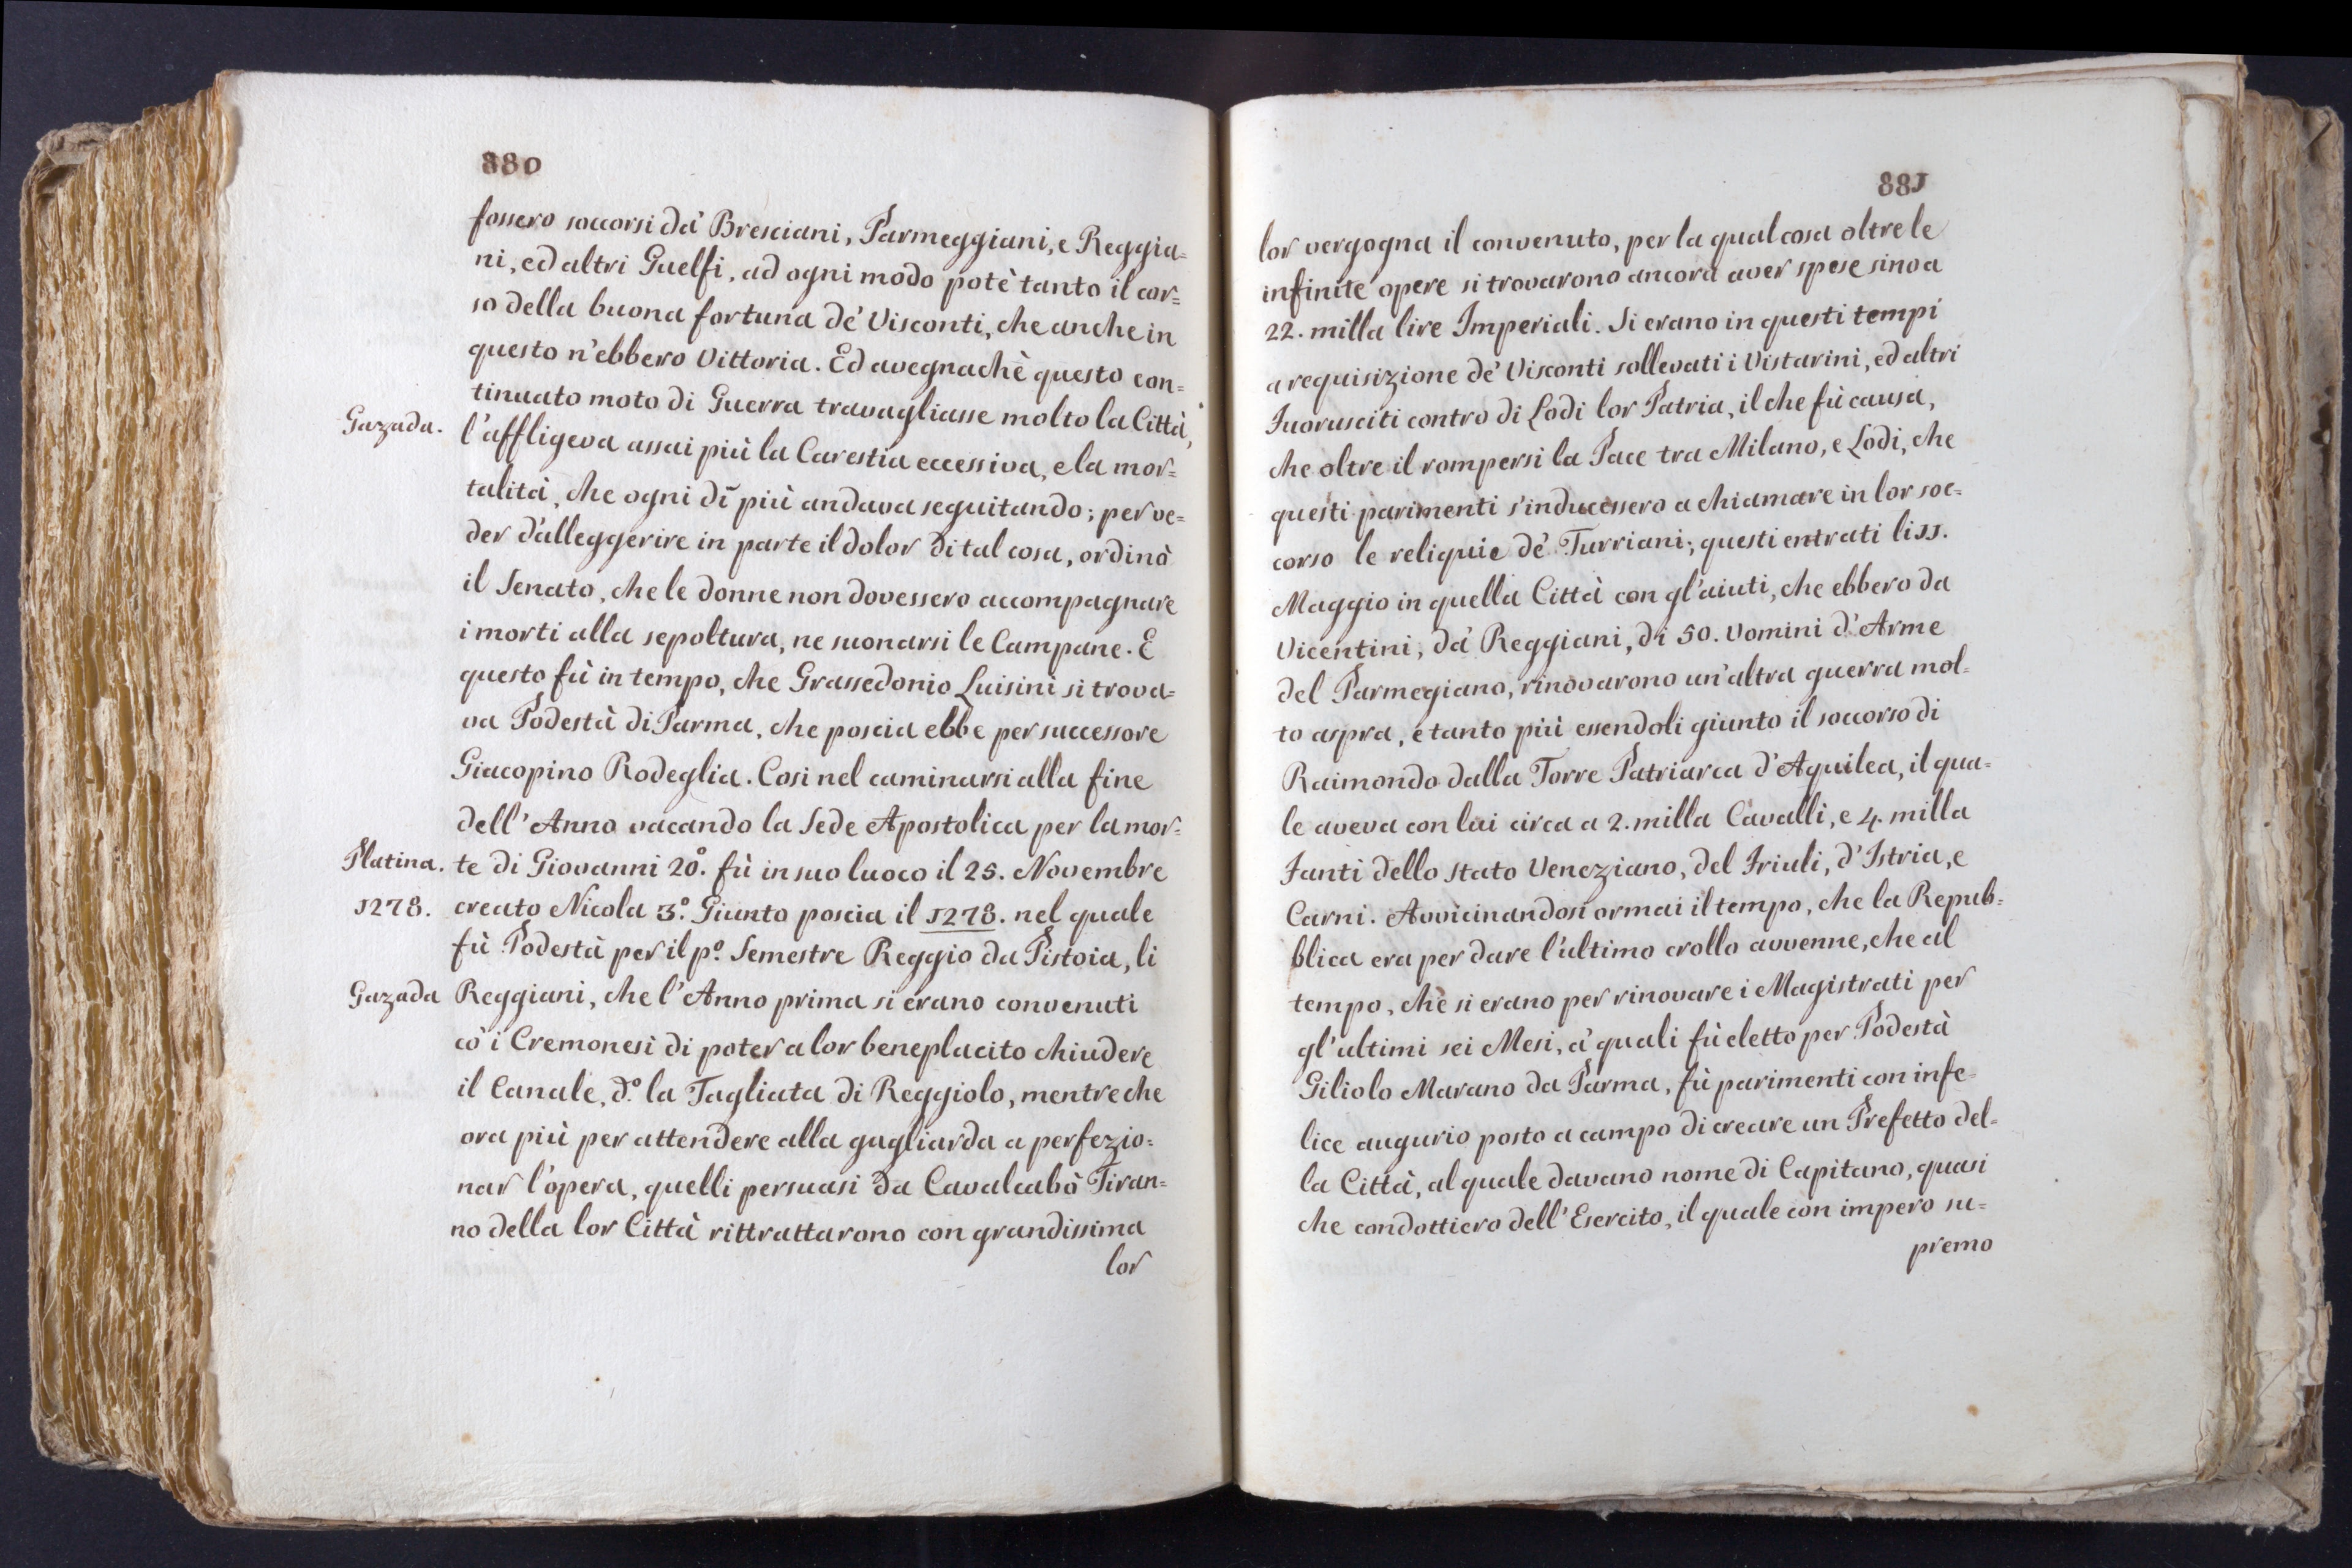 880
fossero soccorsi da' Bresciani, Parmeggiani, e Reggia=
ni, ed altri Guelfi, ad ogni modo potè tanto il cor=
so della buona fortuna de' Visconti, che anche in
questo n'ebbero Vittoria. Ed avegnachè questo con=
tinuato moto di Guerra travagliasse molto la Città,
Gazada.
l'affligeva assai più la Carestia eccessiva, e la mor=
talità, che ogni dì più andava seguitando; per ve=
der d'alleggerire in parte il dolor di tal cosa, ordinò
il Senato, che le donne non dovessero accompagnare
i morti alla sepoltura, ne suonarsi le Campane. E
questo fù in tempo, che Grassedonio Luisini si trova=
va Podestà di Parma, che poscia ebbe per successore
Giacopino Rodeglia. Cosi nel caminarsi alla fine
dell'Anno vacando la Sede Apostolica per la mor=
Platina. te di Giovanni 20º. fù in suo luoco il 25. Novembre
1278. creato Nicola 3º. Giunto poscia il 1278. nel quale
fù Podestà per il pº. Semestre Reggio da Pistoia, li
Gazada Reggiani, che l'Anno prima si erano convenuti
cò i Cremonesi di poter a lor beneplacito chiudere
il Canale, dº. la Tagliata di Reggiolo, mentre che
ora più per attendere alla gagliarda a perfezio=
nar l'opera, quelli persuasi da Cavalcabò Tiran=
no della lor Città rittrattarono con grandissima
lor
881
lor vergogna il convenuto, per la qual cosa oltre le
infinite opere si trovarono ancora aver spese sino a
22. milla lire Imperiali. Si erano in questi tempi
a requisizione de' Visconti sollevati i Vistarini, ed altri
Fuorusciti contro di Lodi lor Patria, il che fù causa,
che oltre il rompersi la Pace tra Milano, e Lodi, che
questi parimenti s'inducessero a chiamare in lor soc=
corso le reliquie de' Turriani; questi entrati li 11.
Maggio in quella Città con gl'aiuti, che ebbero da
Vicentini, da' Reggiani, di 50. Uomini d'Arme
del Parmegiano, rinovarono un'altra guerra mol=
to aspra, e tanto più essendoli giunto il soccorso di
Raimondo dalla Torre Patriarca d'Aquilea, il qua=
le aveva con lui circa a 2. milla Cavalli, e 4. milla
Fanti dello stato Veneziano, del Friuli, d'Istria, e
Carni. Avvicinandosi ormai il tempo, che la Repub=
blica era per dare l'ultimo crollo avvenne, che al
tempo, che si erano per rinovare i Magistrati per
gl'ultimi sei Mesi, a' quali fù eletto per Podestà
Giliolo Marano da Parma, fù parimenti con infe=
lice augurio posto a campo di creare un Prefetto del=
la Città, al quale davano nome di Capitano, quasi
che condottiero dell'Esercito, il quale con impero su=
premo